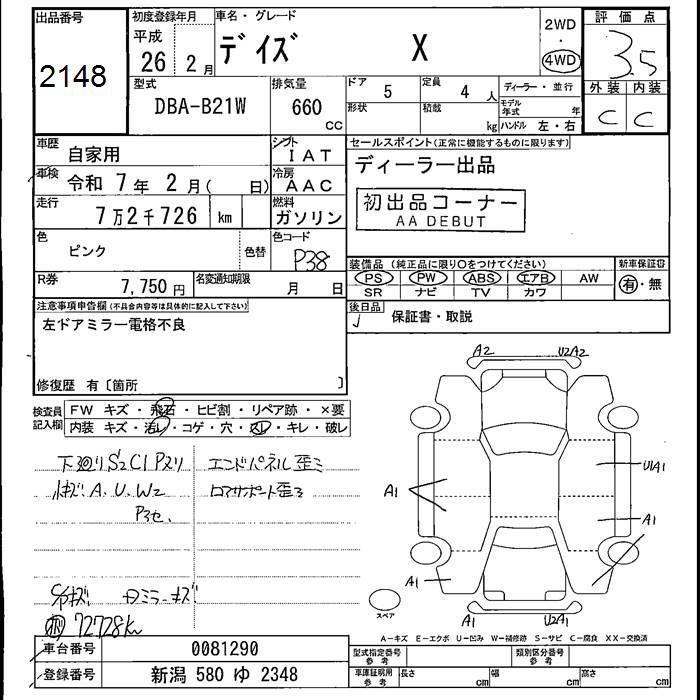 出品番号
2148
初度登録年月
平成
26年 2月
車名・グレード
デイズ X
2WD
・
4WD
評価点
3.5
外装 内装
C C
型式
DBA-B21W
排気量
660
cc
ドア 5
形状
定員 4 人
積載 kg
ディーラー・並行
モデル年式 年
ハンドル 左・右
車歴 自家用
シフト IAT
車検 令和 7年 2月( 日)
冷房 AAC
走行 7万2千726 km
燃料 ガソリン
色 ピンク 色替
色コード P38
R券 7,750円
名変通知期限 月 日
セールスポイント(正常に機能するものに限ります)
ディーラー出品
初出品コーナー
AA DEBUT
装備品(純正品に限り○をつけてください)
PS PW ABS エアB AW
SR ナビ TV カワ
新車保証書
有・無
後日品
保証書・取説
注意事項申告欄(不具合内容等は具体的に記入して下さい)
左ドアミラー電格不良
修復歴 有〔箇所 〕
検査員記入欄
FW キズ・飛石・ヒビ割・リペア跡・×要
内装 キズ・汚レ・コゲ・穴・スレ・キレ・破レ
下廻りS2C1Pヌリ
エンドパネル歪ミ
小キズA.U.W2
ロアサポート歪ミ
Pヌセ.
ミラーキズ
72728km
A2 U2A2
A1 U1A1
A1
A1
A1 U2A1
スペア
A-キズ E-エクボ U-凹み W-補修跡 S-サビ C-腐食 XX-交換済
車台番号 0081290
登録番号 新潟 580 ゆ 2348
型式指定番号 参考
類別区分番号 参考
車庫証明用 参考
長さ cm
幅 cm
高さ cm